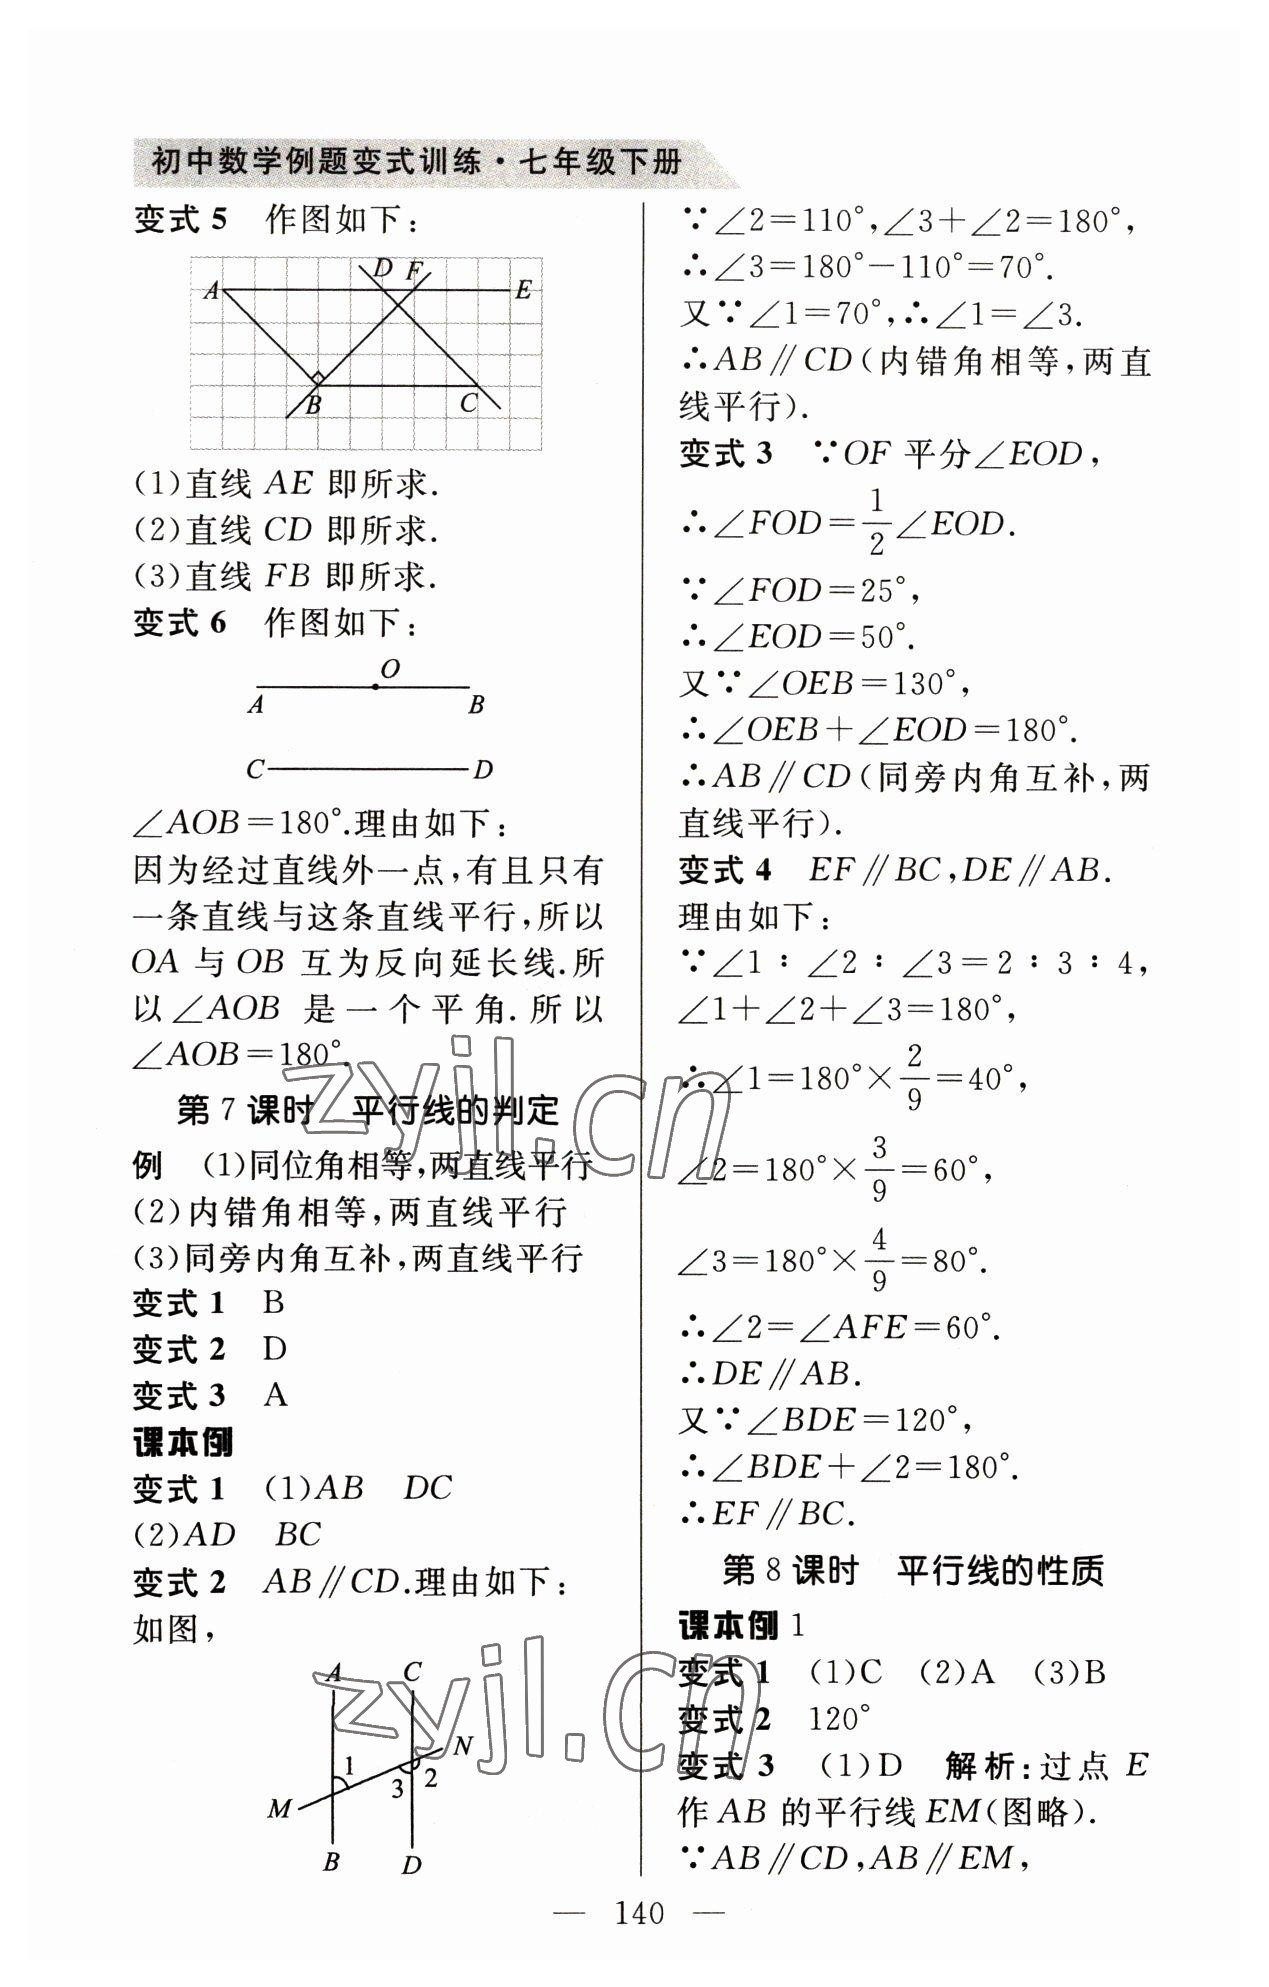 初中数学例题变式训练·七年级下册
变式5 作图如下:
A D F E
B C
(1)直线 AE 即所求.
(2)直线 CD 即所求.
(3)直线 FB 即所求.
变式6 作图如下:
O
A B
C D
∠AOB=180°.理由如下:
因为经过直线外一点,有且只有
一条直线与这条直线平行,所以
OA 与 OB 互为反向延长线.所
以∠AOB 是一个平角.所以
∠AOB=180°.
第7课时 平行线的判定
例 (1)同位角相等,两直线平行
(2)内错角相等,两直线平行
(3)同旁内角互补,两直线平行
变式1 B
变式2 D
变式3 A
课本例
变式1 (1)AB DC
(2)AD BC
变式2 AB∥CD.理由如下:
如图,
A C
N
1 3 2
M
B D
∵∠2=110°,∠3+∠2=180°,
∴∠3=180°-110°=70°.
又∵∠1=70°,∴∠1=∠3.
∴AB∥CD(内错角相等,两直
线平行).
变式3 ∵OF 平分∠EOD,
∴∠FOD=1/2∠EOD.
∵∠FOD=25°,
∴∠EOD=50°.
又∵∠OEB=130°,
∴∠OEB+∠EOD=180°.
∴AB∥CD(同旁内角互补,两
直线平行).
变式4 EF∥BC,DE∥AB.
理由如下:
∵∠1∶∠2∶∠3=2∶3∶4,
∠1+∠2+∠3=180°,
∴∠1=180°×2/9=40°,
∠2=180°×3/9=60°,
∠3=180°×4/9=80°.
∴∠2=∠AFE=60°.
∴DE∥AB.
又∵∠BDE=120°,
∴∠BDE+∠2=180°.
∴EF∥BC.
第8课时 平行线的性质
课本例1
变式1 (1)C (2)A (3)B
变式2 120°
变式3 (1)D 解析:过点 E
作 AB 的平行线 EM(图略).
∵AB∥CD,AB∥EM,
— 140 —
zyjl.cn
zyjl.cn